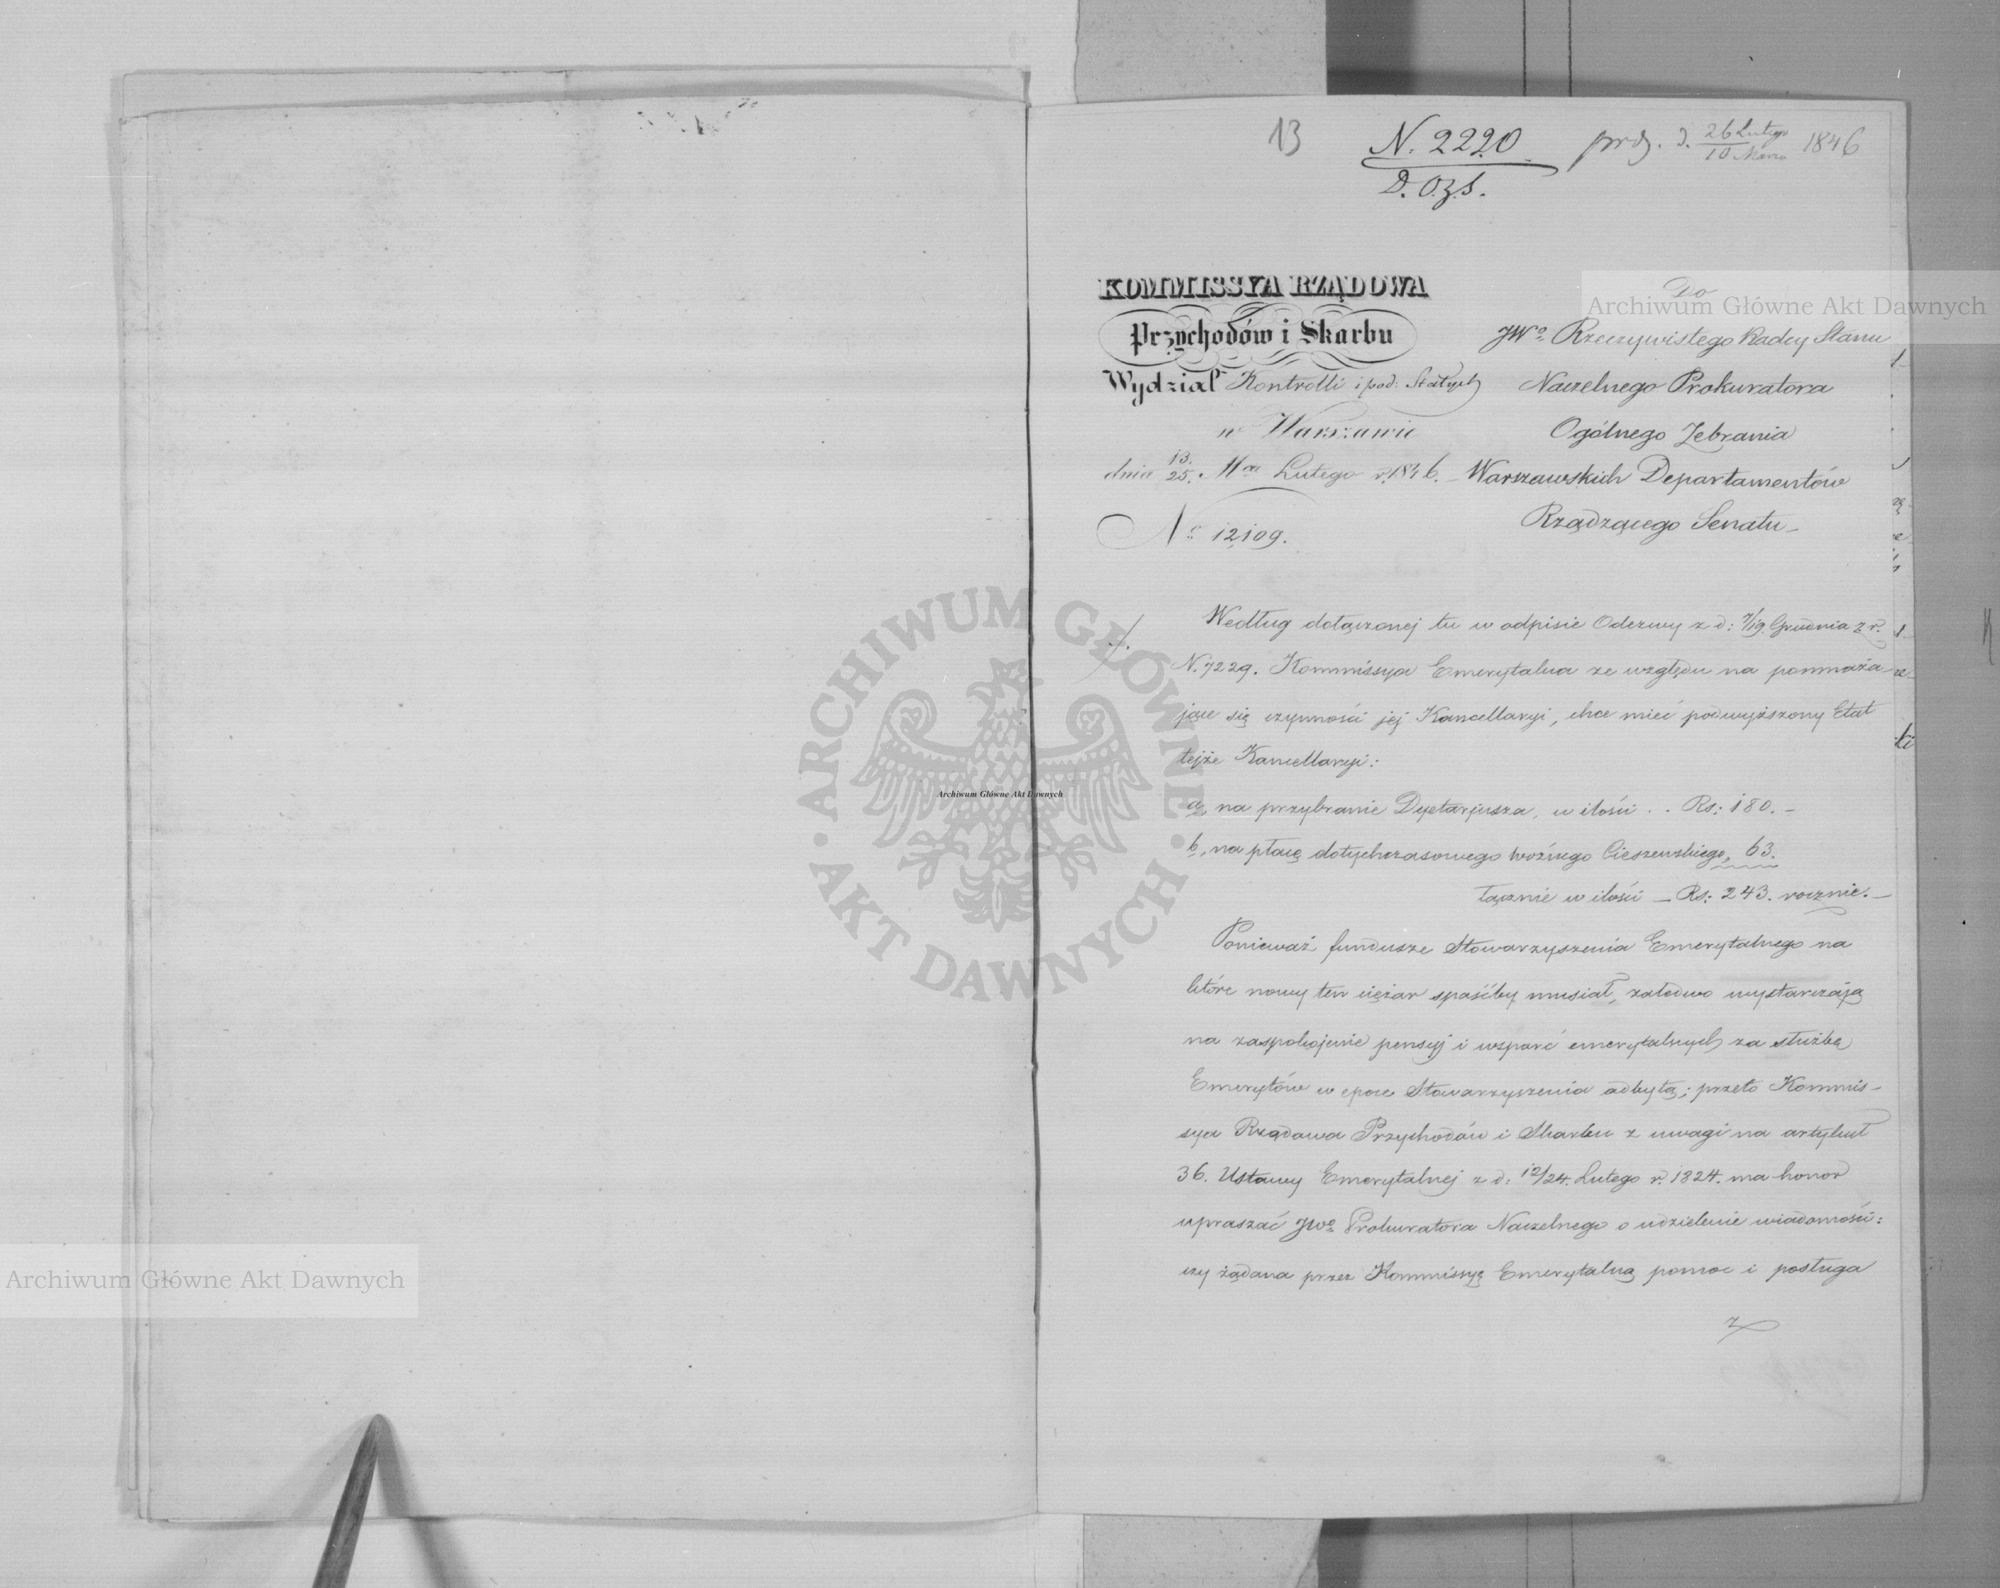 13
N. 2220 prdz. d. 26 Lutego / 10 Marca 1846
D. O. z. S.
KOMMISSYA RZĄDOWA
Przychodów i Skarbu
Wydział Kontrolli i pod: Stałych
w Warszawie
dnia 13/25. Mca Lutego r. 1846.
No 12,109.
Do
JWo Rzeczywistego Radcy Stanu
Naczelnego Prokuratora
Ogólnego Zebrania
Warszawskich Departamentów
Rządzącego Senatu
Według dołączonej tu w odpisie Odezwy z d: 7/19. Grudnia z. r.
N. 7229. Kommissya Emerytalna ze względu na pomnaża-
jące się czynności jej Kancellaryi, chce mieć podwyższony Etat
tejże Kancellaryi:
a, na przybranie Dyetarjusza, w ilości . . Rs: 180. –
b, na płacę dotychczasowego woźnego Cieszewskiego, 63.
łącznie w ilości – Rs: 243. rocznie. –
Ponieważ fundusze Stowarzyszenia Emerytalnego na
które nowy ten ciężar spaśćby musiał, zaledwo wystarczają
na zaspokojenie pensyj i wsparć emerytalnych za służbę
Emerytów w epoce Stowarzyszenia odbytą; przeto Kommis-
sya Rządowa Przychodów i Skarbu z uwagi na artykuł
36. Ustawy Emerytalnej z d: 12/24. Lutego r. 1824. ma honor
upraszać JWo Prokuratora Naczelnego o udzielenie wiadomości:
czy żądana przez Kommissyę Emerytalną pomoc i posługa
Archiwum Główne Akt Dawnych
ARCHIWUM GŁÓWNE AKT DAWNYCH
Archiwum Główne Akt Dawnych
Archiwum Główne Akt Dawnych